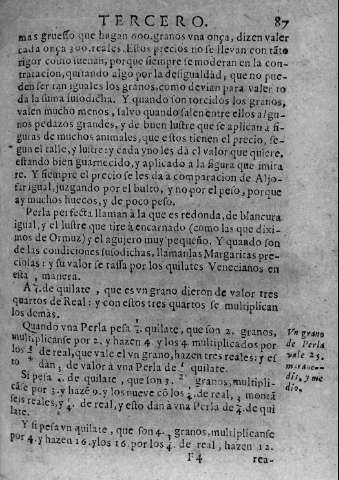 TERCERO. 87
mas gruesso que hagan 600. granos vna onça, dizen valer
cada onça 300. reales. Estos precios no se lleuan con tãto
rigor como suenan, porque siempre se moderan en la con-
tratacion, quitando algo por la desigualdad, que no pue-
den ser tan iguales los granos, como deuian para valer to
da la suma susodicha. Y quando son torcidos los granos,
valen mucho menos, saluo quando salen entre ellos algu-
nos pedazos grandes, y de buen lustre que se aplican a fi-
guras de muchos animales, que estos tienen el precio, se-
gun el talle, y lustre: y cada vno les dà el valor que quiere,
estando bien guarnecido, y aplicado a la figura que imita
re. Y siempre el precio se les da a comparacion de Aljo-
far igual, juzgando por el bulto, y no por el peso, porque
ay muchos huecos, y de poco peso.
Perla perfecta llaman à la que es redonda, de blancura
igual, y el lustre que tire à encarnado (como las que dixi-
mos de Ormuz) y el agujero muy pequeño. Y quando son
de las condiciones susodichas, llamanlas Margaritas pre-
ciosas: y su valor se tassa por los quilates Venecianos en
esta, manera.
A de quilate, que es vn grano dieron de valor tres
quartos de Real: y con estos tres quartos se multiplican
los demàs.
Quando vna Perla pesa quilate, que son 2. granos,
multiplicanse por 2. y hazen 4. y los 4. multiplicados por
los de real, que vale el vn grano, hazen tres reales: y es
to dan, de valor à vna Perla de quilate.
Si pesa de quilate, que son 3. granos, multipli-
case por 3. y hazẽ 9. y los nueue cõ los de real, montã
seis reales, y de real, y esto dàn à vna Perla de de qui
late.
Y si pesa vn quilate, que son 4. granos, multiplicanse
por 4. y hazen 16. y los 16. por los de real, hazen 12.
F 4 rea-
Vn grano
de Perla
vale 25.
maraue-
dis, y me
dio.